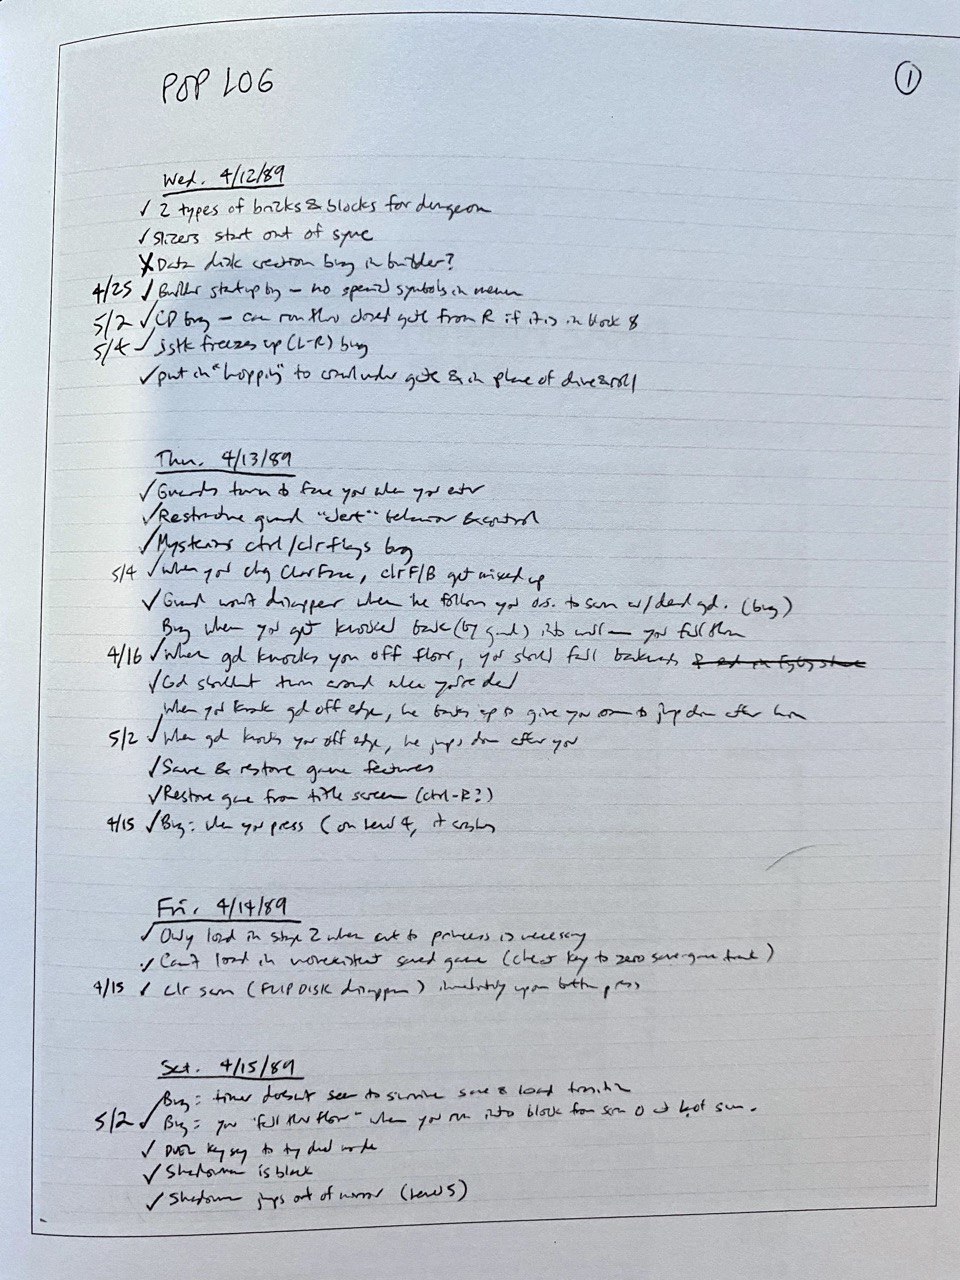 POP LOG
1
Wed. 4/12/89
✓ 2 types of bricks & blocks for dungeon
✓ Slicers start out of sync
X Data disk creation bug in builder?
4/25 ✓ Builder startup bug – no special symbols in menu
5/2 ✓ CD bug – can run thru closed gate from R if it is in block 8
5/4 ✓ jstk freezes up (L-R) bug
✓ put in "hopping" to crawl under gate & in place of dive & roll
Thu. 4/13/89
✓ Guards turn to face you when you enter
✓ Restructure guard "alert" behavior & control
✓ Mysterious ctrl/clrflags bug
5/4 ✓ When you chg CharFace, clr F/B get mixed up
✓ Guard won't disappear when he follows you o.s. to scrn w/dead gd. (bug)
Bug when you get knocked back (by guard) into wall you fall thru
4/16 ✓ When gd knocks you off floor, you should fall backwards
✓ Gd shouldn't turn around when you're dead
When you knock gd off edge, he backs up to give you room to jump down after him
5/2 ✓ When gd knocks you off edge, he jumps down after you
✓ Save & restore game features
✓ Restore game from title screen (ctrl-R?)
4/15 ✓ Bug: when you press ( on Level 4, it crashes
Fri. 4/14/89
✓ Only load in stage 2 when cut to princess is necessary
✓ Can't load in nonexistent saved game (cheat key to zero save-game track)
4/15 ✓ clr scrn (FLIP DISK disappears) immediately upon button press
Sat. 4/15/89
✓ Bug: timer doesn't seem to survive save & load transition
5/2 ✓ Bug: you "fall thru floor" when you run into block from scrn 0 → of scrn.
✓ key to dead mode
✓ Shadowman is black
✓ Shadowman jumps out of mirror (Level 5)